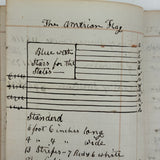 The American Flag
Blue with
Stars for the
States —
Standerd
6 foot 6 inches long
4 " 4 " wide
13 Strips - 7 Red & 6 white